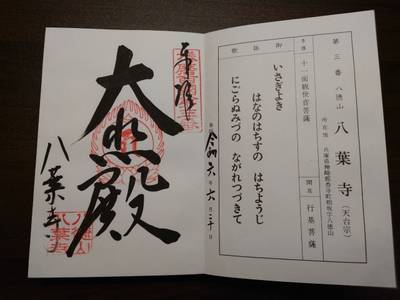 第三番 八徳山
八葉寺
(天台宗)
所在地 兵庫県神崎郡香寺町相坂字八徳山
本尊 十一面観世音菩薩
開基 行基菩薩
御詠歌
いさぎよき
はなのはちすの はちようじ
にごらぬみづの ながれつづきて
奉拝
大悲殿
八葉寺
令和六年六月二十日